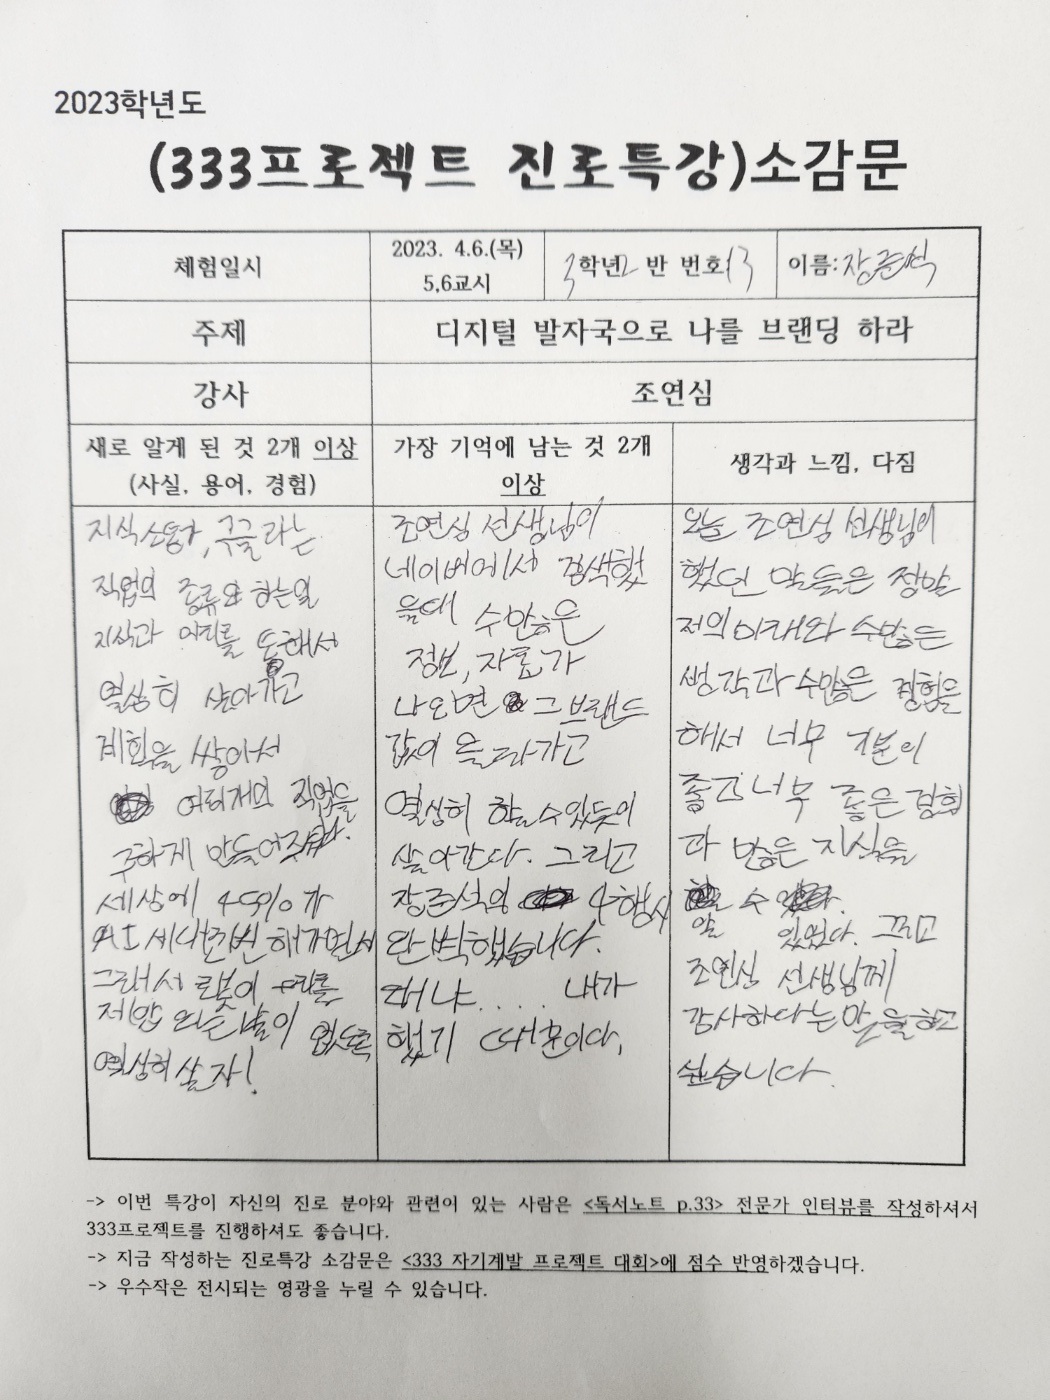 2023학년도
(333프로젝트 진로특강)소감문
체험일시
2023. 4.6.(목)
5,6교시
3학년 2 반 번호 13
이름: 장준석
주제
디지털 발자국으로 나를 브랜딩 하라
강사
조연심
새로 알게 된 것 2개 이상
(사실, 용어, 경험)
지식소통가, 구글라는
직업의 종류와 하는일
지식과 의미를 통해서
열심히 살아가고
계획을 쌓아서
여러개의 직업을
구하게 만들어
세상에 45%가
AI 세대 해가면서
그래서 로봇이 우리를
없도록
열심히 살자!
가장 기억에 남는 것 2개
이상
조연심 선생님이
네이버에서 검색했
을때 수많은
정보, 자료가
나오면 그 브랜드
값이 올라가고
열심히 할 수 있듯이
살아간다. 그리고
장준석의 4행시
완벽했습니다.
왜냐.... 내가
했기 때문이다.
생각과 느낌, 다짐
오늘 조연심 선생님이
했던 말들은 정말
저의 미래와 수많은
생각과 수많은 경험을
해서 너무 기분이
좋고 너무 좋은 경험
과 많은 지식을
알 수 있었다. 그리고
조연심 선생님께
감사하다는 말을 하고
싶습니다.
-> 이번 특강이 자신의 진로 분야와 관련이 있는 사람은 <독서노트 p.33> 전문가 인터뷰를 작성하셔서
333프로젝트를 진행하셔도 좋습니다.
-> 지금 작성하는 진로특강 소감문은 <333 자기계발 프로젝트 대회>에 점수 반영하겠습니다.
-> 우수작은 전시되는 영광을 누릴 수 있습니다.